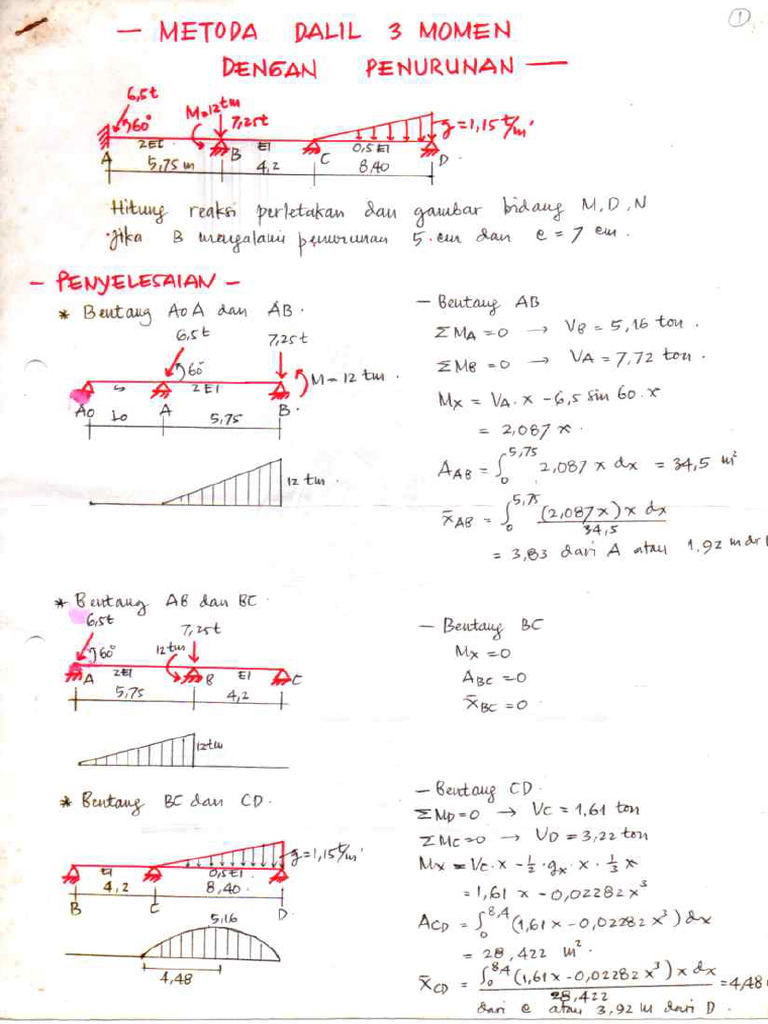 1
— METODA DALIL 3 MOMEN
DENGAN PENURUNAN —
6,5t
60°
M=12tm
7,25t
q=1,15 t/m'
2EI
EI
0,5EI
A
B
C
D
5,75 m
4,2
8,40
Hitung reaksi perletakan dan gambar bidang M, D, N
jika B mengalami penurunan 5 cm dan c = 7 cm.
- PENYELESAIAN -
* Bentang AoA dan AB.
6,5t
7,25t
60°
2EI
M = 12 tm.
Ao
Lo
A
5,75
B.
12 tm.
— Bentang AB
ΣMA = 0 → VB = 5,16 ton.
ΣMB = 0 → VA = 7,72 ton.
Mx = VA. x - 6,5 sin 60. x
= 2,087 x.
AAB = ∫₀^5,75 2,087 x dx = 34,5 m²
x̄AB = ∫₀^5,75 (2,087 x) x dx / 34,5
= 3,83 dari A atau 1,92 m
* Bentang AB dan BC.
6,5t
7,25t
60°
12tm
2EI
EI
A
B
C
5,75
4,2
12tm
— Bentang BC
Mx = 0
ABC = 0
x̄BC = 0
* Bentang BC dan CD.
q=1,15 t/m'
EI
0,5EI
4,2
8,40
B
C
D
5,16
4,48
— Bentang CD.
ΣMD=0 → VC = 1,61 ton
ΣMC=0 → VD = 3,22 ton
Mx = VC. x - ½. qx. x. ⅓ x
= 1,61 x - 0,02282 x³
ACD = ∫₀^8,4 (1,61x - 0,02282 x³) dx
= 28,422 m².
x̄CD = ∫₀^8,4 (1,61x - 0,02282 x³) x dx / 28,422 = 4,48
dari c atau 3,92 m dari D.